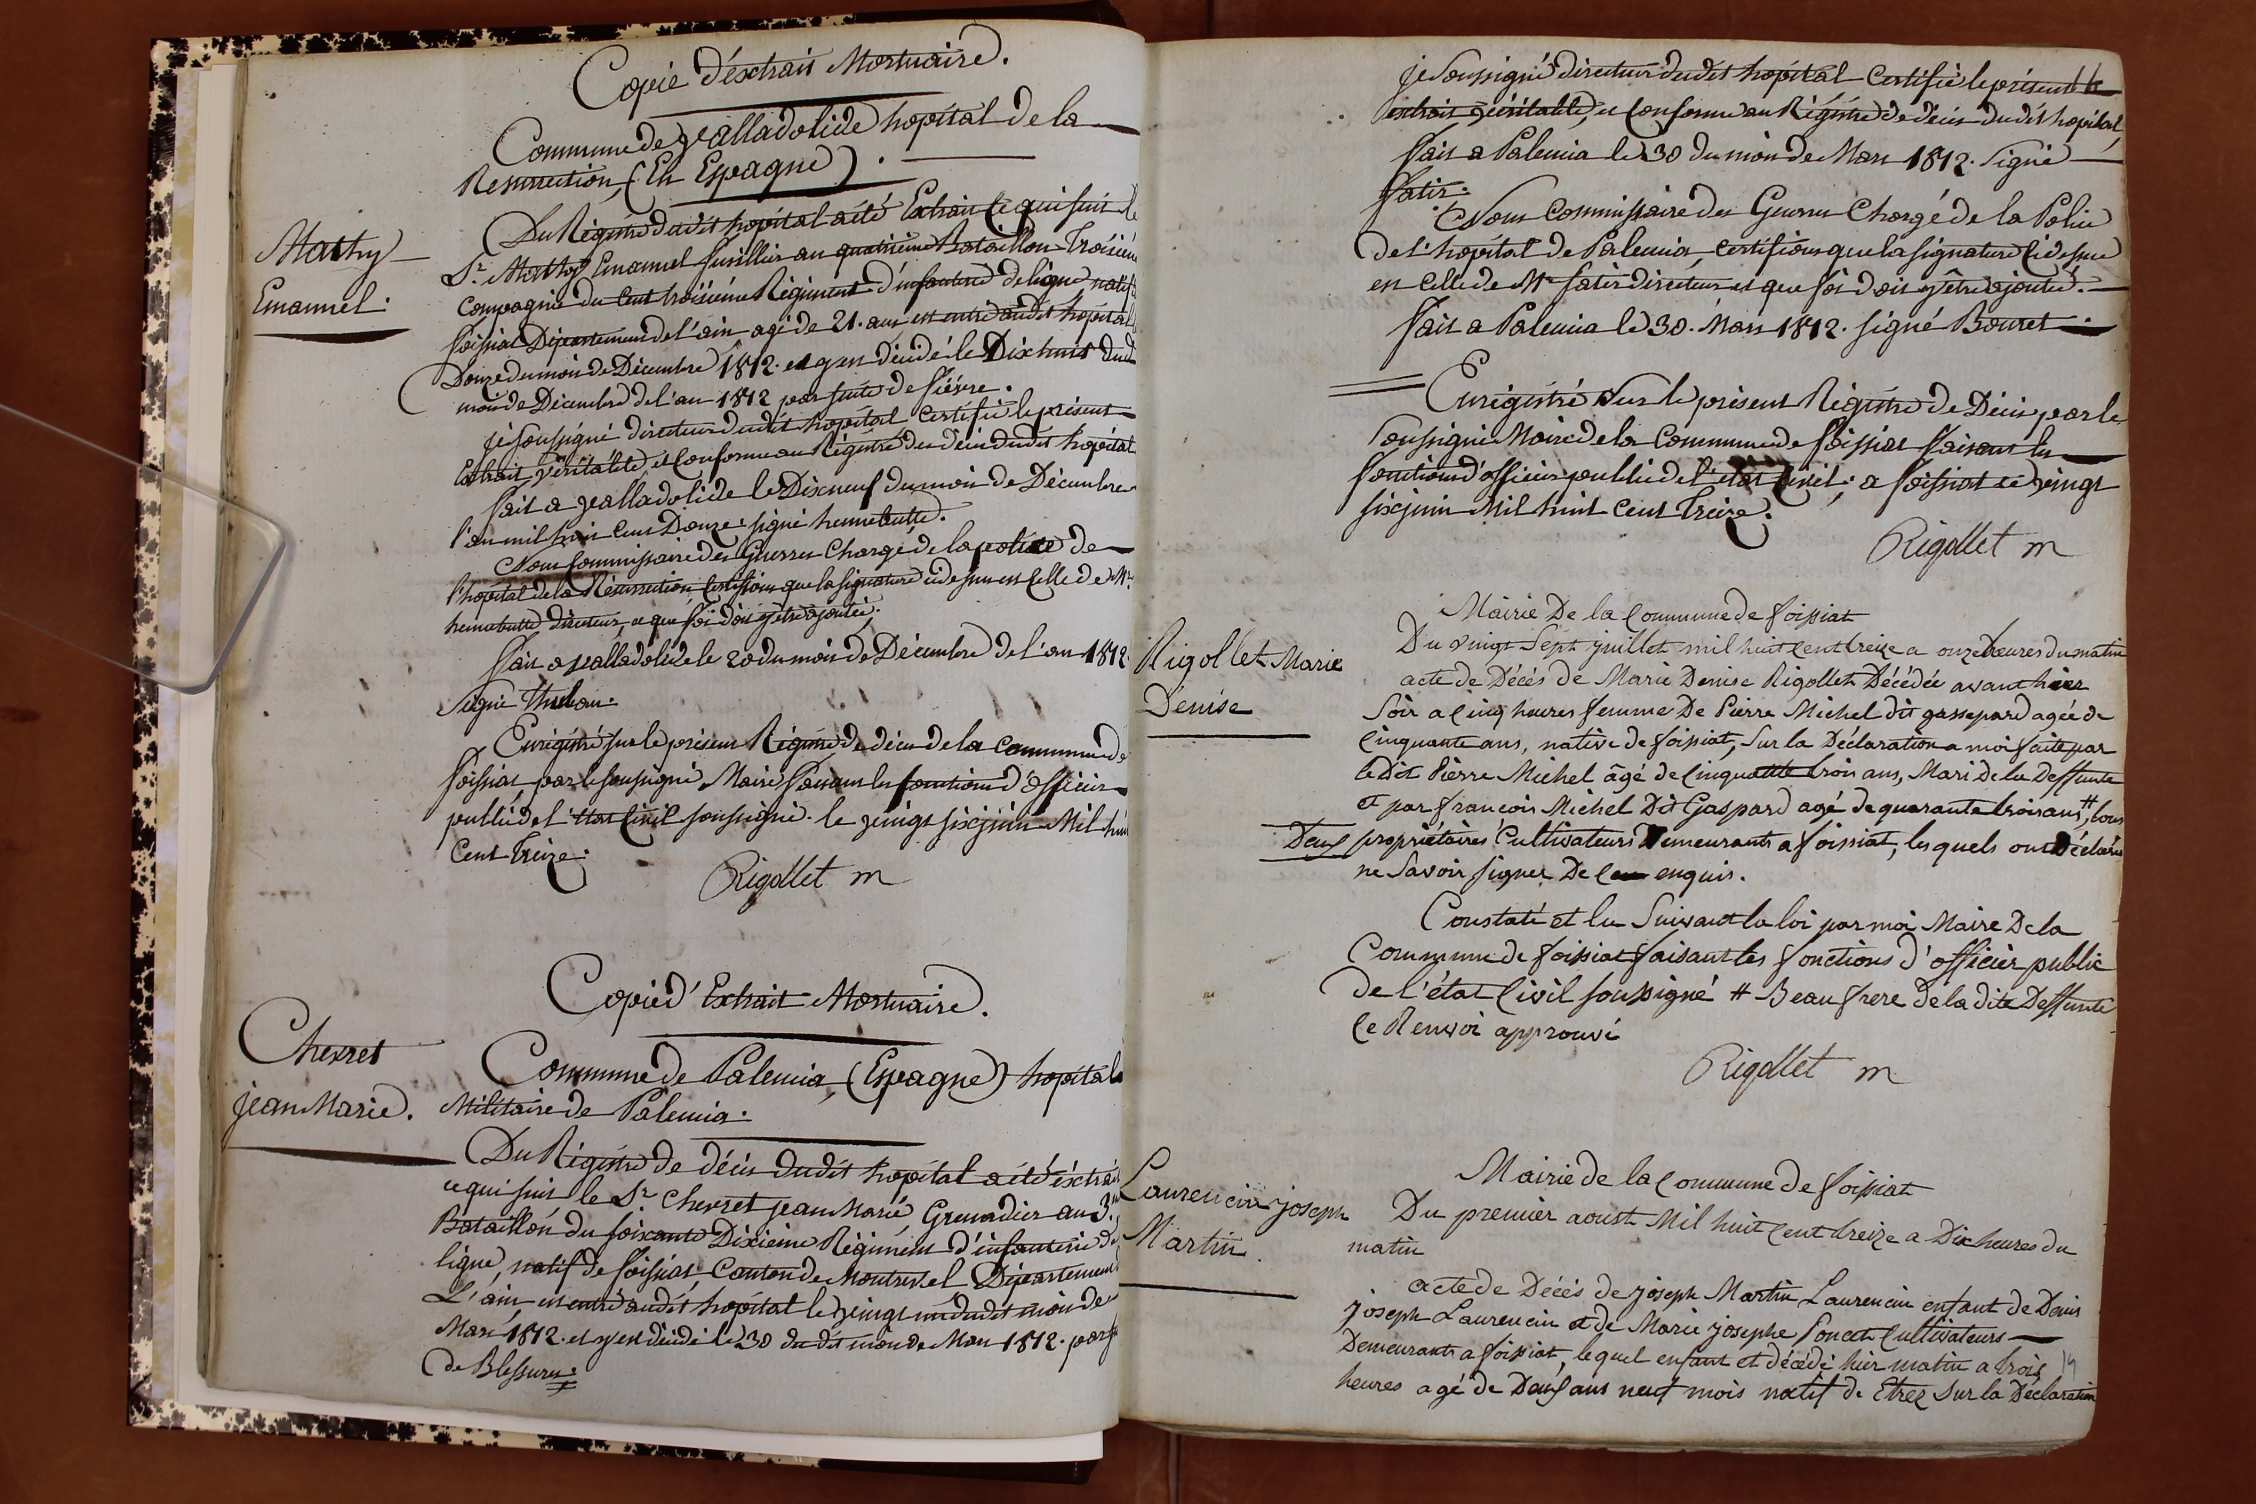 Copie d'éxtrait Mortuaire.
Commune de valladolide hopital de la
Resurrection, (En Espagne).
Mathy
Emanuel.
Du Régistre dudit hopital a été Extrait Ce qui suit le
Sr. Mathy Emanuel fusillier au quatrième Bataillon Troisième
Compagnie du Cent troisième Régiment d'infanterie de ligne natif de
foissiat Département de l'ain agé de 21. ans est entré audit hopital
Douze du mois de Décembre 1812. et y est décédé le Dixhuit dud
mois de Décembre de l'an 1812 par suite de fiévre.
je soussigné directeur dudit hopital Certifie le présent
Extrait véritable, et Conforme au Régistre des décés dudit hopital
fait a valladolide le Dixneuf du mois de Décembre
l'an mil huit Cent Douze. signé hennebutte.
Nous Commissaire des Guerres Chargé de la police de
l'hopital de la Résurrection Certifions que la signature ci dessus est Celle de Mr.
hennebutte Directeur, et que foi doit y être ajoutée.
fait a valladolide le 20 du mois de Décembre de l'an 1812.
Signé
Enrégistré sur le présent Régistre de décés de la Commune de
foissiat, par le soussigné Maire faisant les fonctions d'officier
public de l'Etat Civil soussigné. le vingt six juin Mil huit
Cent Treize.
Rigollet m
Copie d'Extrait Mortuaire.
Chevret
jean Marie.
Commune de Palencia, (Espagne) hopital
Militaire de Palencia.
Du Régistre de décés dudit hopital a été éxtrait
ce qui suit le Sr. Chevret jean Marie Grenadier au 3.me
Bataillon du soixante Dixieme Régiment d'infanterie de
ligne, natif de foissiat, Canton de Montrevel Département
L'ain, est entré audit hopital le vingt un dudit mois de
Mars 1812. et y est décédé le 30 dudit mois de Mars 1812. par
de Blessures.
je soussigné directeur dudit hopital Certifie le présent
extrait véritable, et Conforme au Régistre de décés dudit hopital,
fait a Palencia le 30 du mois de Mars 1812. signé
fatir.
Nous Commissaire des Guerres Chargé de la Police
de l'hopital de Palencia, certifions que la signature Ci dessus
est Celle de Mr fatir directeur et que foi doit y être ajoutée.
fait a Palencia le 30. Mars 1812. signé Bouret.
Enrégistré Sur le présent Régistre de Décés par le
Soussigné Maire de la Commune de foissiat faisant les
fonctions d'officier public de l'état Civil; a foissiat ce vingt
six juin Mil huit Cent Treize.
Rigollet m
Mairie De la Commune de foissiat
Rigollet Marie
Denise
Du vingt Sept juillet mil huit Cent treize a onze heures du matin
acte de Décès de Marie Denise Rigollet Décédée avant hier
Soir a Cinq heures femme De Pierre Michel dit gassepard agée de
Cinquante ans, native de foissiat, Sur la Déclaration a moi faite par
le Dit Pierre Michel âgé de Cinquante trois ans, Mari de la Deffunte
et par francois Michel Dit Gaspard agé de quarante trois ans #, tous
Deux propriétaires Cultivateurs Demeurants a foissiat, lesquels ont Déclarés
ne Savoir signer De Ce enquis.
Constaté et lu Suivant la loi par moi Maire De la
Commune de foissiat faisant les fonctions d'officier public
de l'état Civil soussigné # Beau frere de la dite Deffunte
Ce Renvoi approuvé
Rigollet m
Mairie de la Commune de foissiat
Laurencin joseph
Martin
Du premier aoust Mil huit Cent treize a Dix heures du
matin
acte de Décés de joseph Martin Laurencin enfant de Denis
joseph Laurencin et de Marie josephe Poncet Cultivateurs
Demeurants a foissiat, lequel enfant est décédé hier matin a trois
heures agé de Deux ans neuf mois natif de Etrez sur la Déclaration